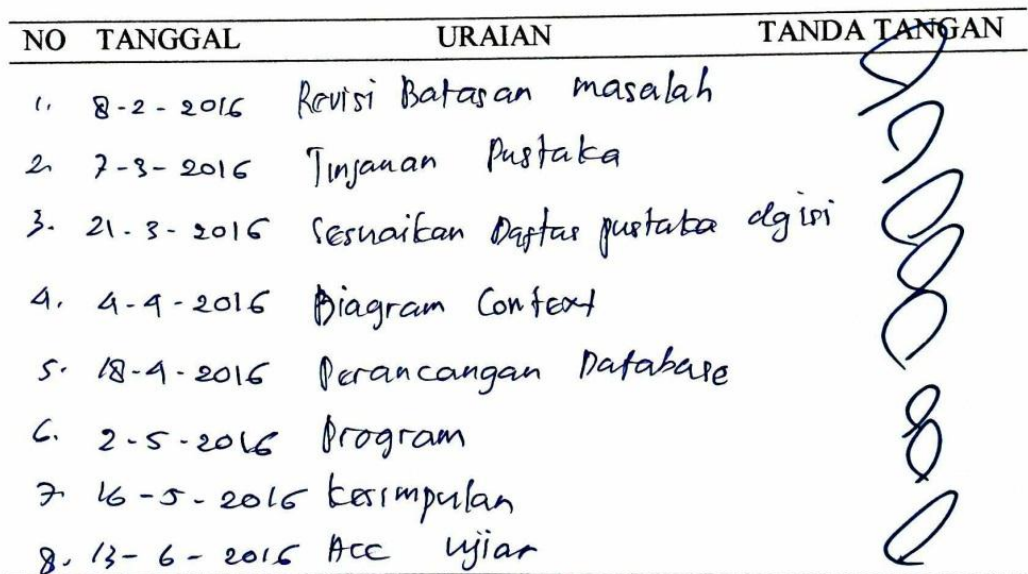 NO TANGGAL URAIAN TANDA TANGAN
1. 8-2-2016 Revisi Batasan masalah
2. 7-3-2016 Tinjauan Pustaka
3. 21-3-2016 Sesuaikan Daftar pustaka dg isi
4. 4-4-2016 Diagram Context
5. 18-4-2016 Perancangan Database
6. 2-5-2016 Program
7. 16-5-2016 kesimpulan
8. 13-6-2016 Acc Ujian